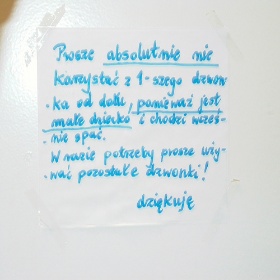 Proszę absolutnie nie
korzystać z 1-szego dzwon-
ka od dołu, ponieważ jest
małe dziecko i chodzi wcześ-
nie spać.
W razie potrzeby proszę uży-
wać pozostałe dzwonki!
dziękuję